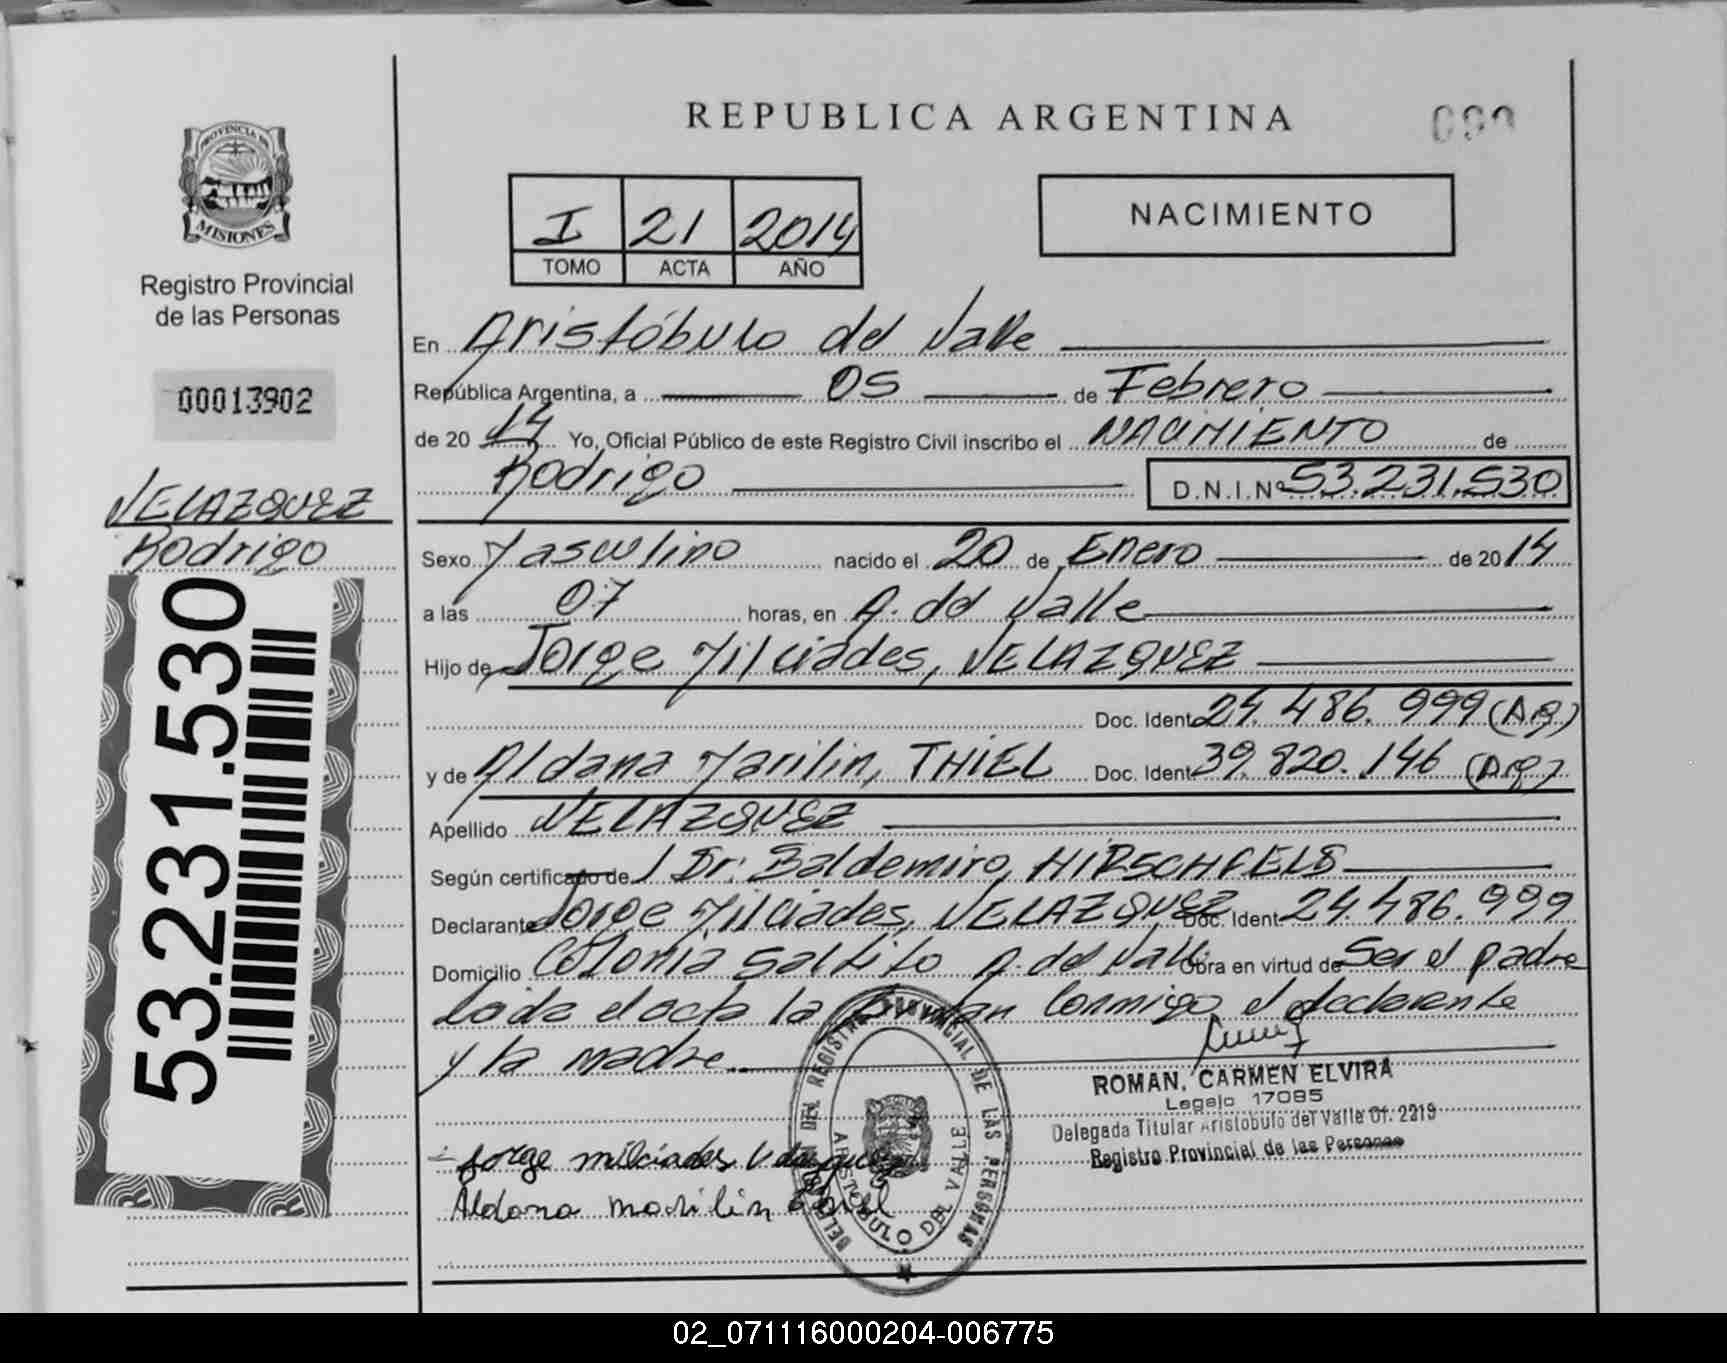 REPUBLICA ARGENTINA
PROVINCIA DE
MISIONES
Registro Provincial
de las Personas
00013902
VELAZQUEZ
Rodrigo
53.231.530
I 21 2014
TOMO ACTA AÑO
NACIMIENTO
En Aristóbulo del Valle
República Argentina, a 05 de Febrero
de 20 14 Yo, Oficial Público de este Registro Civil inscribo el NACIMIENTO de
Rodrigo D.N.I.Nº 53.231.530
Sexo Masculino nacido el 20 de Enero de 2014
a las 07 horas, en A. del Valle
Hijo de Jorge Milciades, VELAZQUEZ
Doc. Ident. 24.486.999 (AR)
y de Aldana Marilin, THIEL Doc. Ident. 39.820.146 (Arg)
Apellido VELAZQUEZ
Según certificado de / Dr. Baldemiro, HIRSCHFELD
Declarante Jorge Milciades, VELAZQUEZ Doc. Ident. 24.486.999
Domicilio Colonia Saltito A. del Valle Obra en virtud de Ser el padre
Leida el acta la firman conmigo el declarante
y la madre
ROMAN, CARMEN ELVIRA
Legajo 17085
Delegada Titular Aristobulo del Valle Of. 2219
Registro Provincial de las Personas
Jorge milciades Velazquez
Aldana marilin thiel
DEL REGISTRO PROVINCIAL DE LAS PERSONAS
ARISTOBULO DEL VALLE
02_071116000204-006775